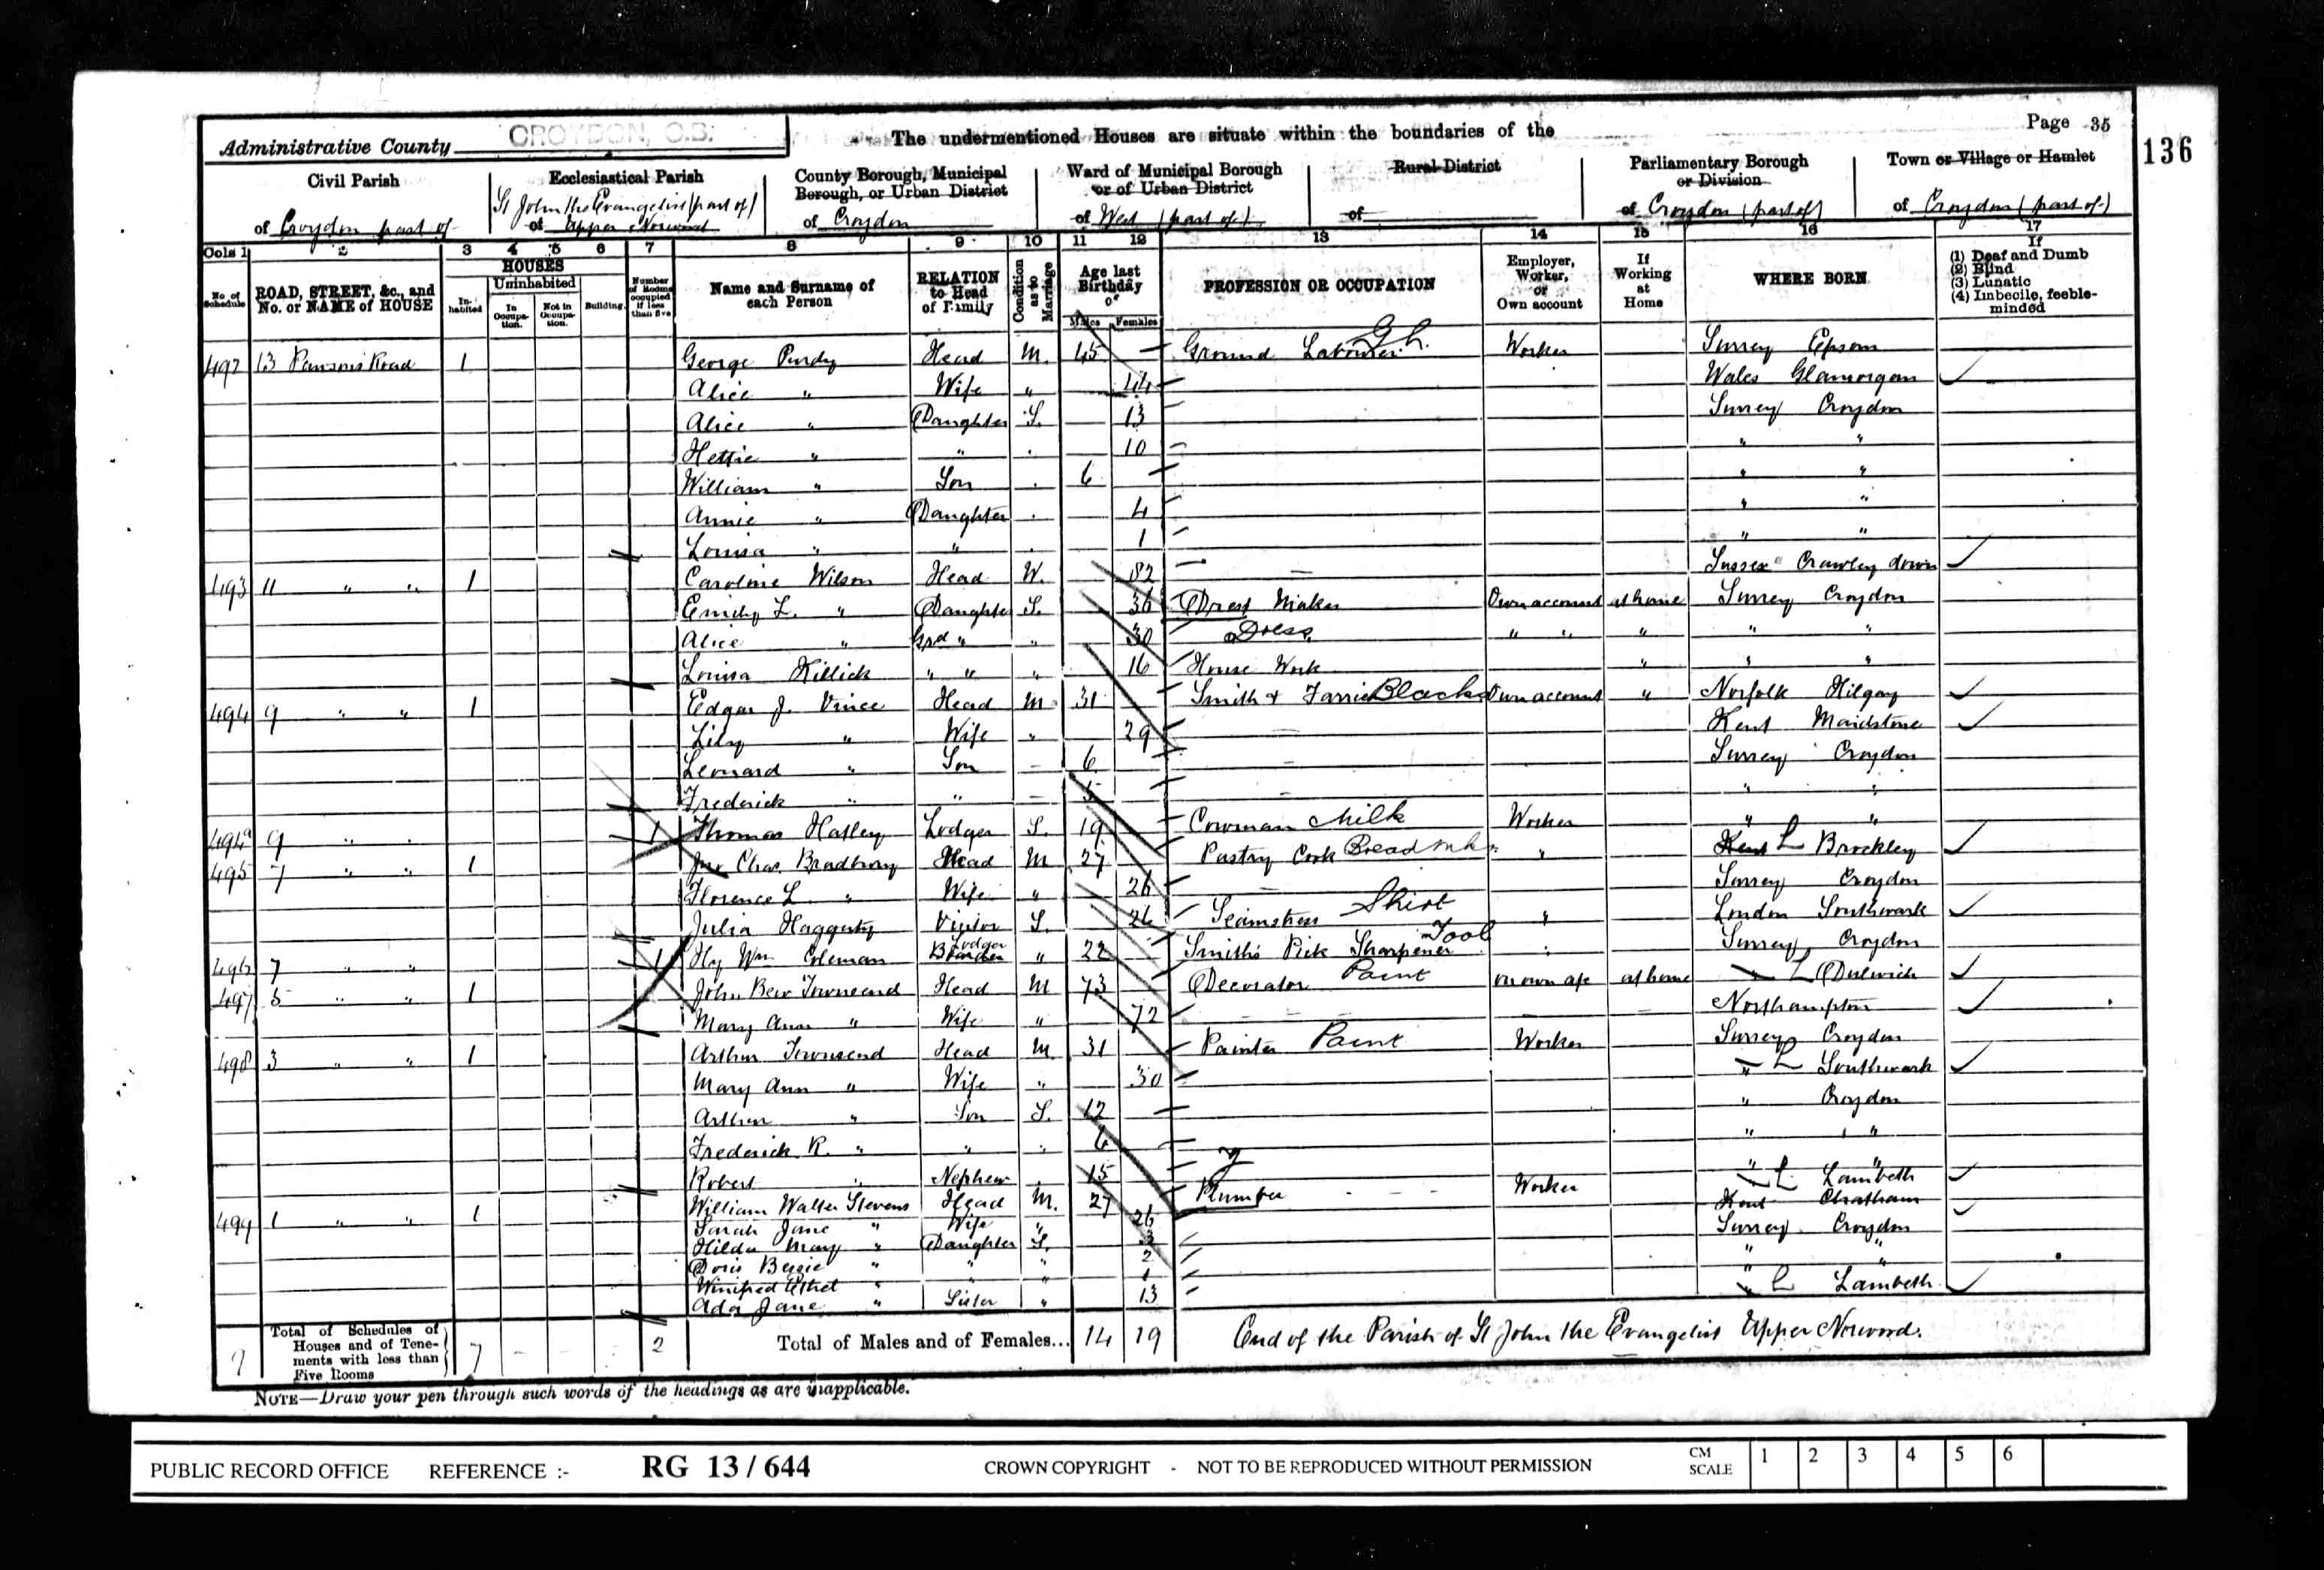 Page 35
136
Administrative County CROYDON, C.B.
The undermentioned Houses are situate within the boundaries of the
Civil Parish
of Croydon part of
Ecclesiastical Parish
St John the Evangelist (part of)
of Upper Norwood
County Borough, Municipal
Borough, or Urban District
of Croydon
Ward of Municipal Borough
or of Urban District
of West (part of)
Rural District
of
Parliamentary Borough
or Division
of Croydon (part of)
Town or Village or Hamlet
of Croydon (part of)
Cols 1 2 3 4 5 6 7 8 9 10 11 12 13 14 15 16 17
No. of Schedule
ROAD, STREET, &c., and No. or NAME of HOUSE
HOUSES
Inhabited
Uninhabited
In Occupation.
Not in Occupation.
Building.
Number of Rooms occupied if less than five
Name and Surname of each Person
RELATION to Head of Family
Condition as to Marriage
Age last Birthday of
Males Females
PROFESSION OR OCCUPATION
Employer, Worker, or Own account
If Working at Home
WHERE BORN
If
(1) Deaf and Dumb
(2) Blind
(3) Lunatic
(4) Imbecile, feeble-minded
492 13 Parsons Road 1 George Purdy Head M. 45 Ground Labourer G L. Worker Surrey Epsom
Alice " Wife " 44 Wales Glamorgan
Alice " Daughter S. 13 Surrey Croydon
Hettie " " 10 " "
William " Son 6 " "
Annie " Daughter 4 " "
Louisa " " 1 " "
493 11 " " 1 Caroline Wilson Head W. 82 Sussex Crawley down
Emily L. " Daughter S. 36 Dress Maker Own account at home Surrey Croydon
Alice " Grd " " 30 Dress " " " " "
Louisa Killick " " " 16 House Work " " "
494 9 " " 1 Edgar J. Vince Head M 31 Smith & Farrier Blacks Own account " Norfolk Hilgay
Lily " Wife " 29 Kent Maidstone
Leonard " Son 6 Surrey Croydon
Frederick " " 5 " "
494a 9 " " 1 Thomas Hatley Lodger S. 19 Cowman Milk Worker " "
495 7 " " 1 Chas. Bradbury Head M 27 Pastry Cook Bread mkr " Kent L Brockley
Florence L. " Wife " 26 Surrey Croydon
Julia Haggerty Visitor S. 26 Seamstress Shirt " London Southwark
496 7 " " 1 Hy Wm Coleman Boarder Lodger " 22 Smith's Pick Sharpener Tool " Surrey Croydon
497 5 " " 1 John Bew Townsend Head M 73 Decorator Paint on own a/c at home " L Dulwich
Mary Ann " Wife " 72 Northampton
498 3 " " 1 Arthur Townsend Head M 31 Painter Paint Worker Surrey Croydon
Mary Ann " Wife " 30 " L Southwark
Arthur " Son S. 12 " Croydon
Frederick R. " " 6 " "
Robert " Nephew 15 " "
499 1 " " 1 William Walter Stevens Head M. 27 Plumber Worker L Lambeth
Sarah Jane " Wife " 26 Kent Chatham
Hilda Mary " Daughter S. 3 Surrey Croydon
Doris Bessie " " " 2 " "
Winifred Ethel " " " 1 " "
Ada Jane " Sister " 13 " L Lambeth
7 Total of Schedules of Houses and of Tenements with less than Five Rooms 7 2 Total of Males and of Females... 14 19 End of the Parish of St John the Evangelist Upper Norwood.
NOTE—Draw your pen through such words of the headings as are inapplicable.
PUBLIC RECORD OFFICE REFERENCE :- RG 13 / 644 CROWN COPYRIGHT - NOT TO BE REPRODUCED WITHOUT PERMISSION CM SCALE 1 2 3 4 5 6